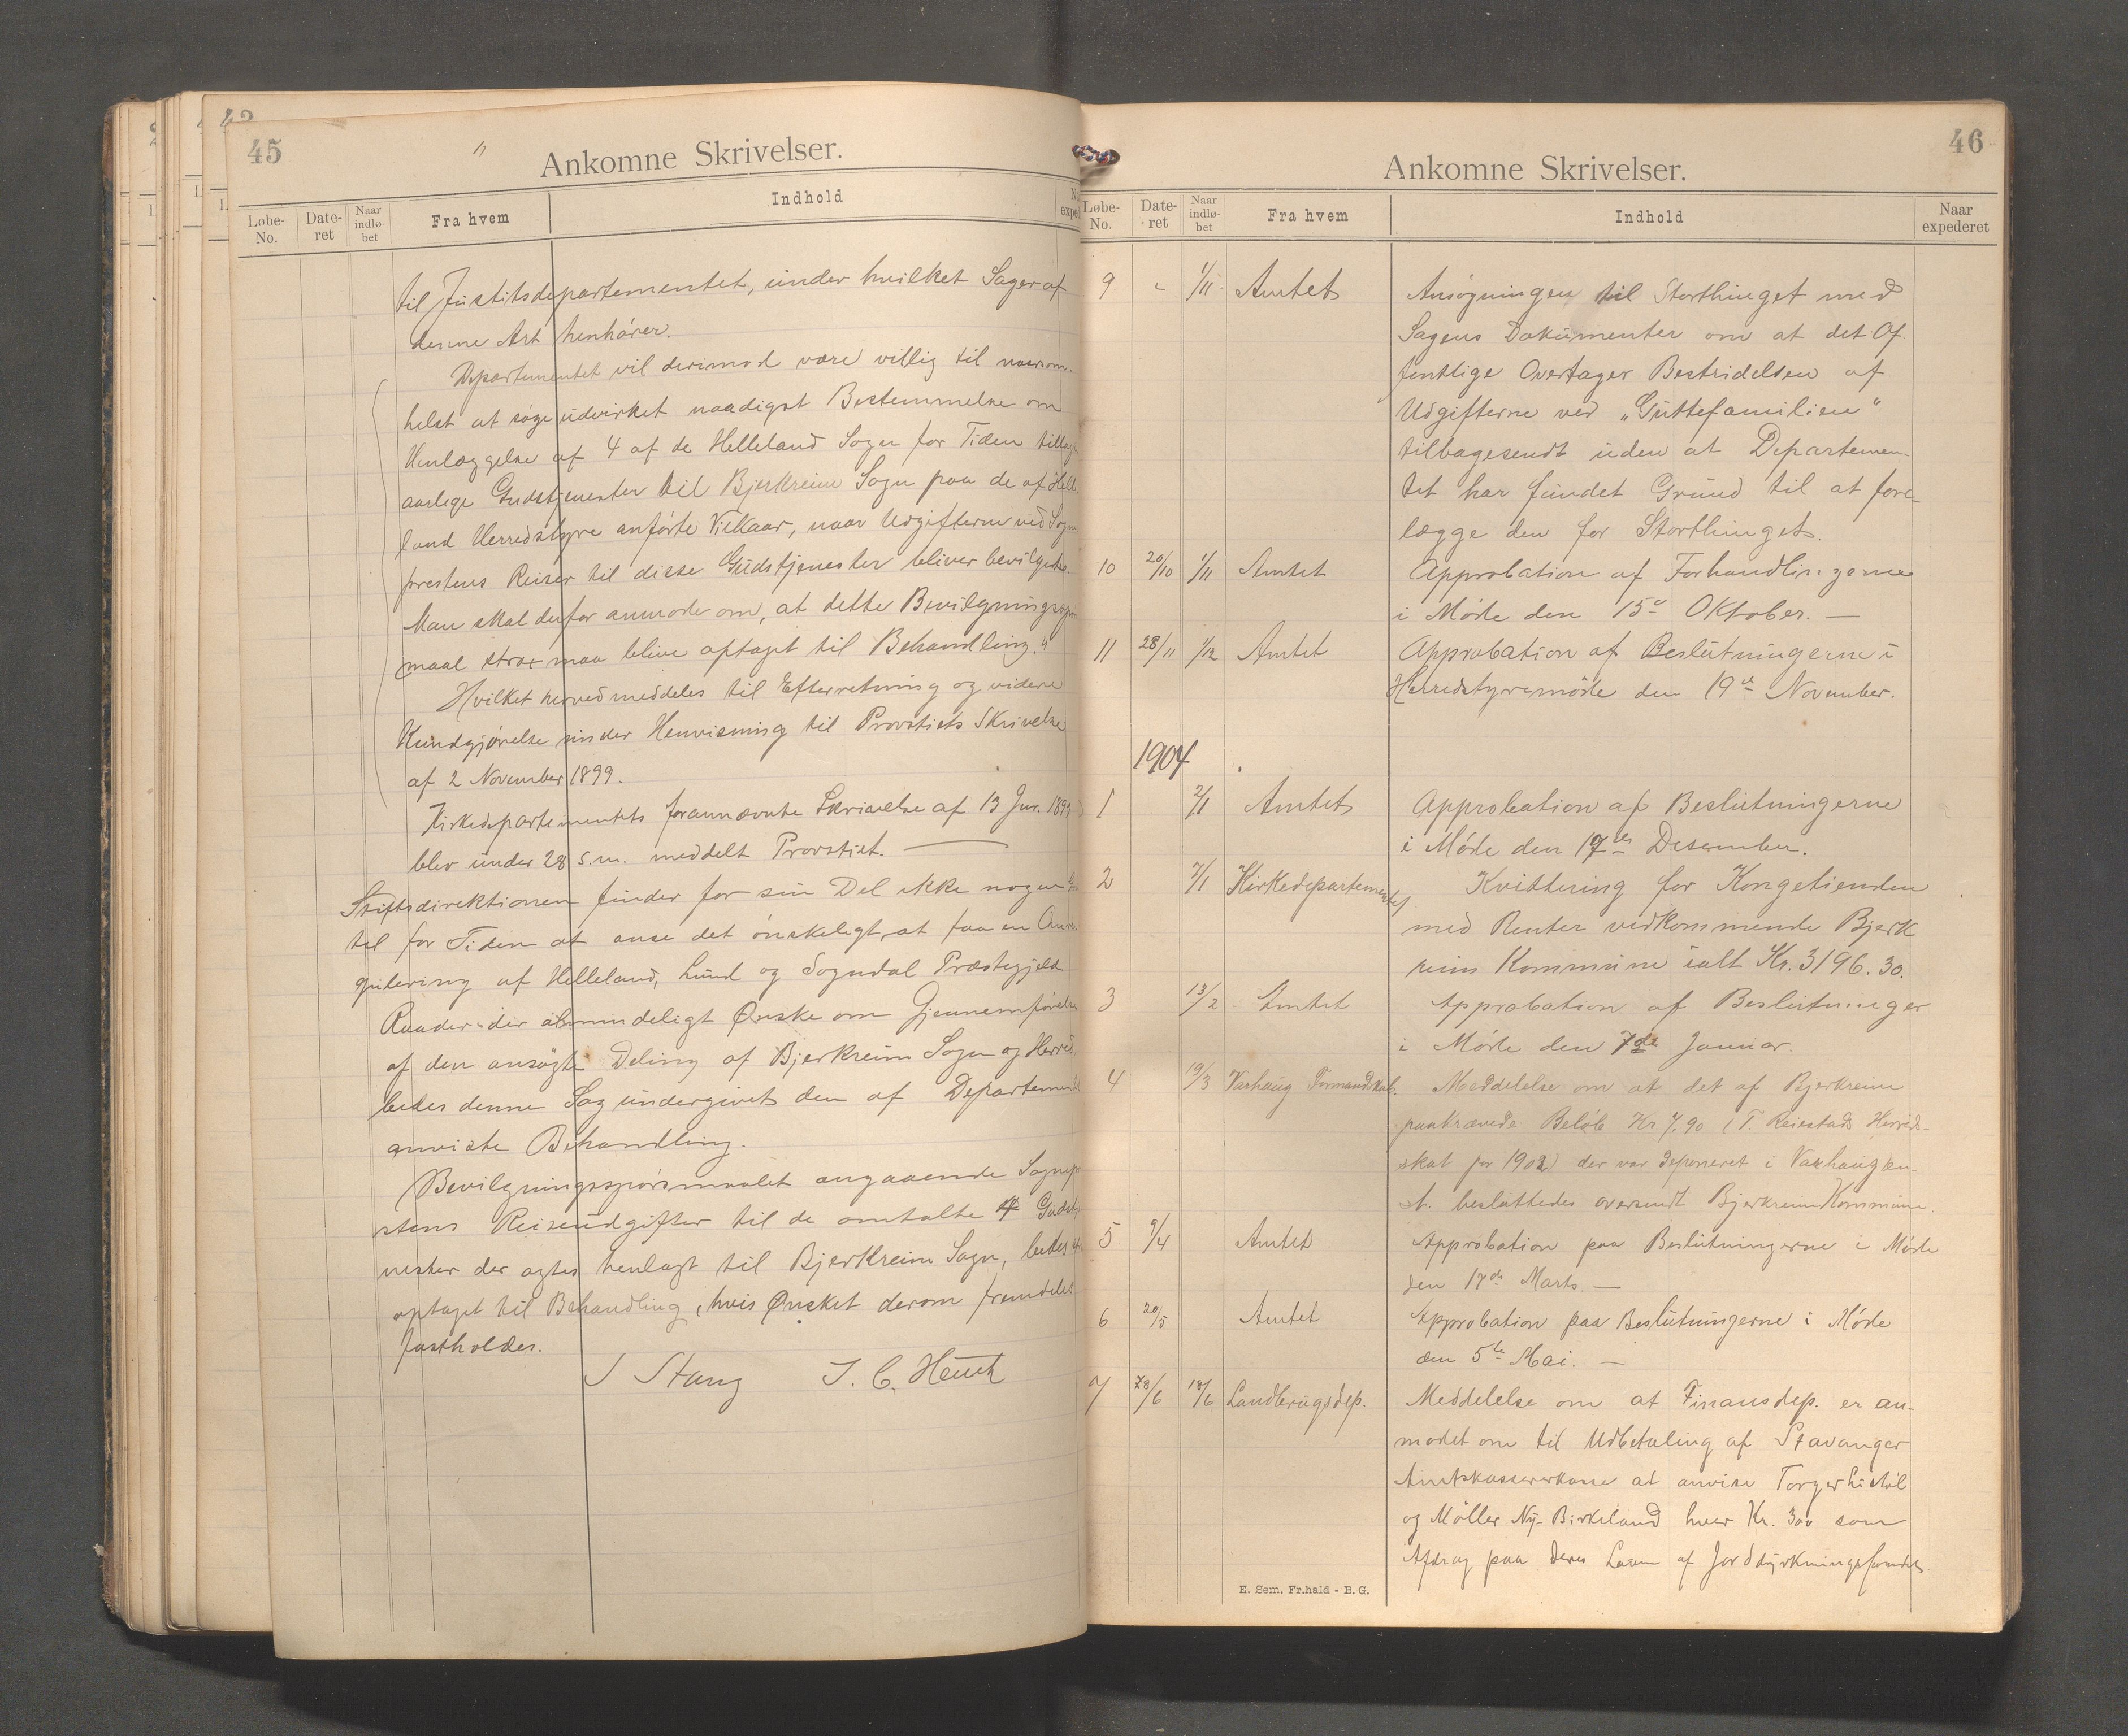 45
Ankomne Skrivelser.
Løbe-No. Date-ret Naar indlø-bet Fra hvem Indhold
til Justitsdepartementet, under hvilket Sager af
denne Art henhører.
Departementet vil derimod være villig til naarsom-
helst at søge udvirket naadigst Bestemmelse om
Henlæggelse af 4 af de Helleland Sogn for Tiden
aarlige Gudstjenester til Bjerkreim Sogn paa de af Helle
land Herredstyre anførte Vilkaar, naar Udgifterne ved Sogne
prestens Reiser til disse Gudstjenester bliver bevilgede.
Man skal derfor anmode om, at dette Bevilgningsspørs
maal strax maa blive optaget til Behandling."
Hvilket herved meddeles til Efterretning og videre
Kundgjørelse under Henvisning til Provstiets Skrivelse
af 2 November 1899.
Kirkedepartementets forannævnte Skrivelse af 13 Jun. 1899
blev under 28 s.m. meddelt Provstiet. —
Stiftsdirektionen finder for sin Del ikke nogen
til for Tiden at anse det ønskeligt at faa en
gulering af Helleland, Lund og Sogndal Præstegjeld
Raader der almindeligt Ønske om Gjennemførelse
af den ansøgte Deling af Bjerkreim Sogn og Herred
bedes denne Sag undergivet den af Departementet
anviste Behandling.
Bevilgningsspørsmaalet angaaende Sognepr
stens Reiseudgifter til de omtalte 4 Gudstj
nester der agtes henlagt til Bjerkreim Sogn, bedes
optaget til Behandling, hvis Ønsket derom fremdeles
fastholdes.
S Stang J. C. Heuch
46
Ankomne Skrivelser.
Løbe-No. Date-ret Naar indlø-bet Fra hvem Indhold Naar expederet
9 1/11 Amtet Ansøgningen til Storthinget med
Sagens Dokumenter om at det Of.
fentlige Overtager Bestridelsen af
Udgifterne ved „Guttefamilien"
tilbagesendt uden at Departemen-
tet har fundet Grund til at fore-
lægge den for Storthinget.
10 20/10 1/11 Amtet Approbation af Forhandlingerne
i Møde den 15de Oktober. —
11 28/11 1/12 Amtet Approbation af Beslutningerne i
Herredstyremøde den 19de November.
1904
1 2/1 Amtet Approbation af Beslutningerne
i Møde den 17de Desember.
2 7/1 Kirkedepartementet Kvittering for Kongetienden
med Renter vedkommende Bjerk
reim Kommune ialt Kr. 3196.30.
3 13/2 Amtet Approbation af Beslutninger
i Møde den 7de Januar.
4 19/3 Varhaug Formandskab. Meddelelse om at det af Bjerkreim
paakrævede Beløb Kr. 7.90 (T. Reiestads Herreds-
skat for 1902) der var deponeret i Varhaug
besluttedes oversendt Bjerkreim Kommune.
5 9/4 Amtet Approbation paa Beslutningerne i Møde
den 17de Marts —
6 20/5 Amtet Approbation paa Beslutningerne i Møde
den 5te Mai. —
7 18/6 Landbrugsdep. Meddelelse om at Finansdep. er an-
modet om til Udbetaling af Stavanger
Amtskassererkasse at anvise Torger
og Møller Ny-Birkeland hver Kr. 300 som
Afdrag paa deres Laan af Jorddyrkningsfondet.
E. Sem. Fr.hald - B.G.